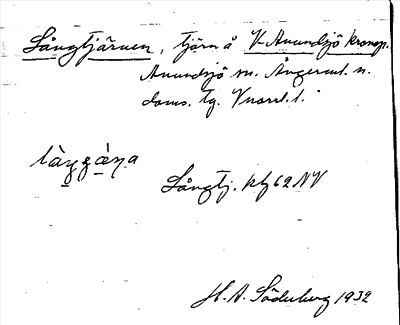 Långtjärnen, tjärn å V. Anundsjö kronop.
Anundsjö sn. Ångerml. n.
doms. tg. Vnorrl. l.
Långtj. kbl 62 NV
H. A. Söderberg 1932